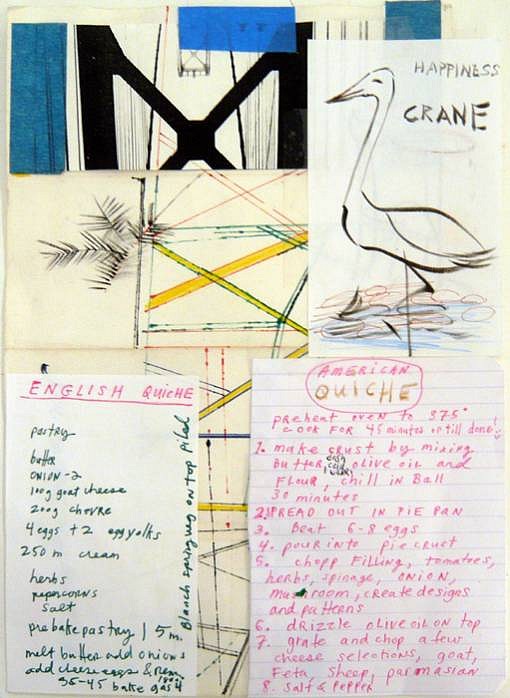 HAPPINESS
CRANE
ENGLISH QUICHE
pastry
butter
ONION - 2
100g goat cheese
200g chevre
4 eggs + 2 egg yolks
250 m cream
herbs
pepercorns
salt
prebake pastry 15 m.
melt butter add onions
add cheese eggs &
35-45 bake gas 4
Blanch spring veg on top piled
AMERICAN
QUICHE
preheat oven to 375°
cook FOR 45 minutes or till done!
1. make crust by mixing
butter, olive oil and
FLour, chill in Ball
30 minutes
2. SPREAD OUT IN PIE PAN
3. Beat 6-8 eggs
4. pour into pie crust
5. chopp Filling, tomatoes,
herbs, spinage, ONION,
mushroom, create designs
and patterns
6. drizzle olive oil on top
7. grate and chop a few
cheese selections, goat,
Feta sheep, parmasian
8. Salt & Pepper